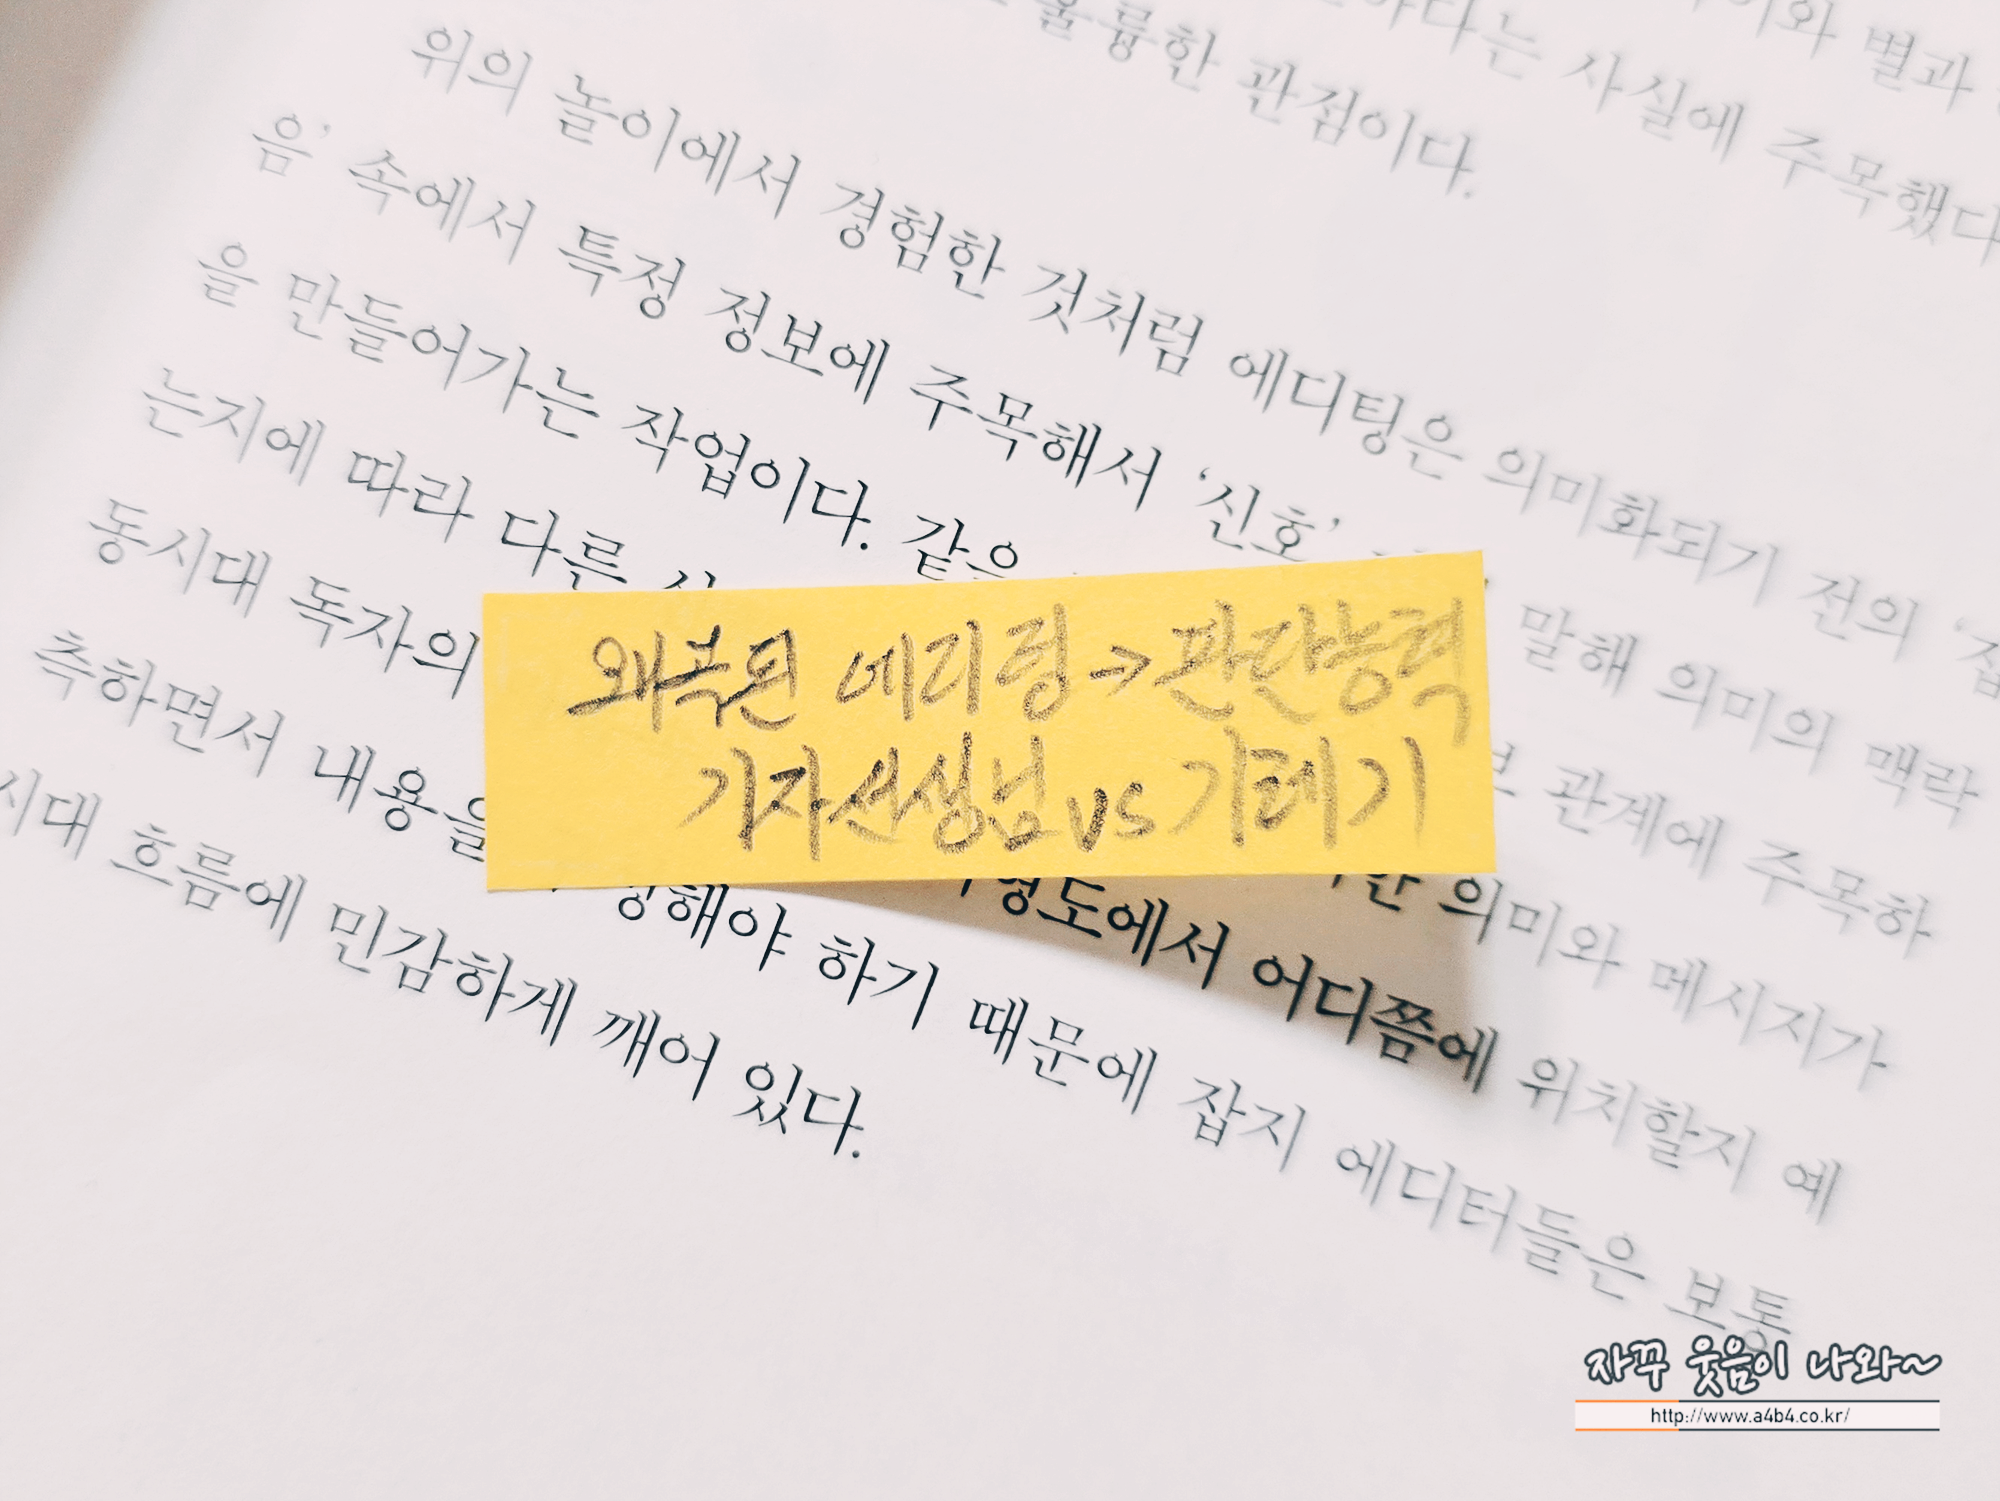 별과
사실에 주목했다
훌륭한 관점이다.
위의 놀이에서 경험한 것처럼 에디팅은 의미화되기 전의 ‘잡
음’ 속에서 특정 정보에 주목해서 ‘신호’ 말해 의미의 맥락
을 만들어가는 작업이다. 같은 관계에 주목하
는지에 따라 다른 의미와 메시지가
동시대 독자의 어디쯤에 위치할지 예
측하면서 내용을 하기 때문에 잡지 에디터들은 보통
시대 흐름에 민감하게 깨어 있다.
왜곡된 에디팅 → 판단능력
기자선생님 vs 기레기
자꾸 웃음이 나와~
http://www.a4b4.co.kr/